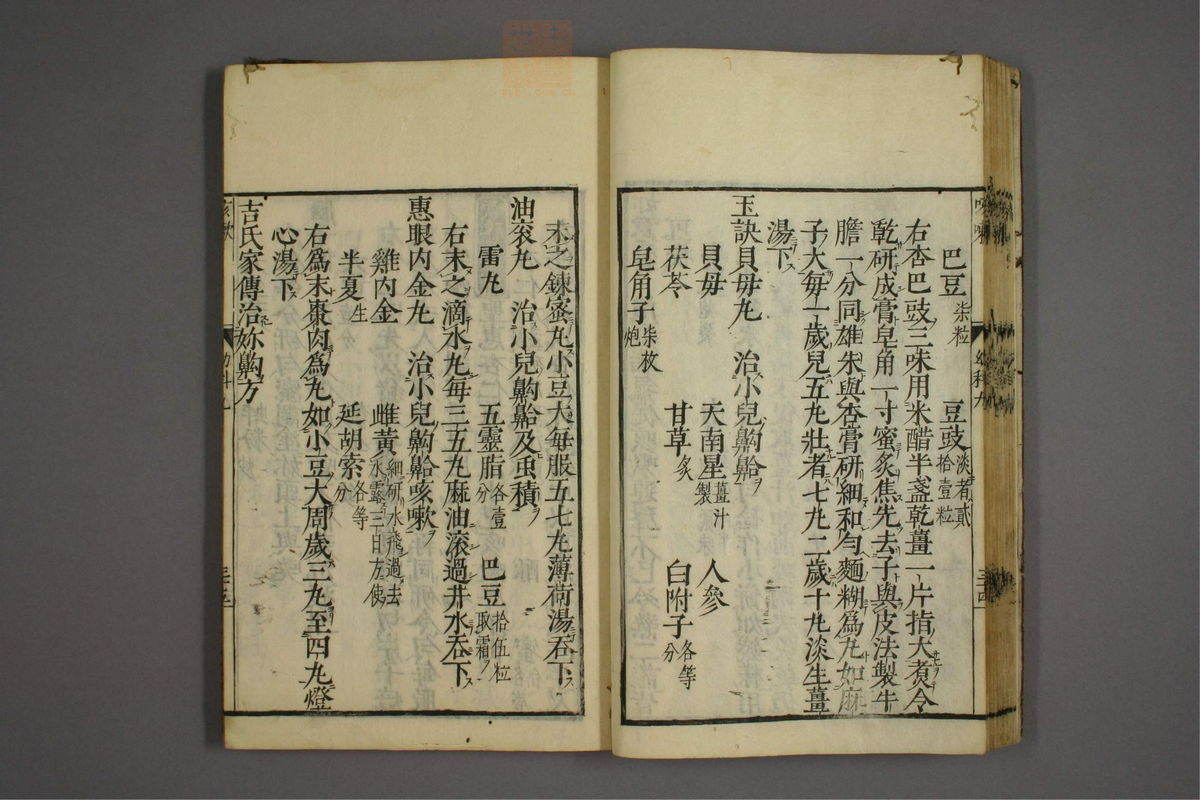 巴豆 柒粒 豆豉 淡者貳拾壹粒
右杏巴豉三味用米醋半盞乾薑一片指大煮令
乾研成膏皂角一寸蜜炙焦先去子與皮法製牛
膽一分同雄朱與杏膏研細和勻麵糊爲丸如麻
子大每一歲兒五丸壯者七丸二歲十丸淡生薑
湯下
玉訣貝母丸 治小兒齁䶎
貝母 天南星 薑汁製 人參
茯苓 甘草 炙 白附子 各等分
皂角子 柒枚炮
末之鍊蜜丸小豆大每服五七丸薄荷湯吞下
油滚丸 治小兒齁䶎及虫積
雷丸 五靈脂 各壹分 巴豆 拾伍粒取霜
右末之滴水丸每三五丸麻油滚過井水吞下
惠眼内金丸 治小兒齁䶎咳嗽
雞内金 雌黃 細研水飛過去水露三日方使
半夏 生 延胡索 各等分
右爲末棗肉爲丸如小豆大周歲三丸至四丸燈
心湯下
吉氏家傳治妳齁方
幼科九